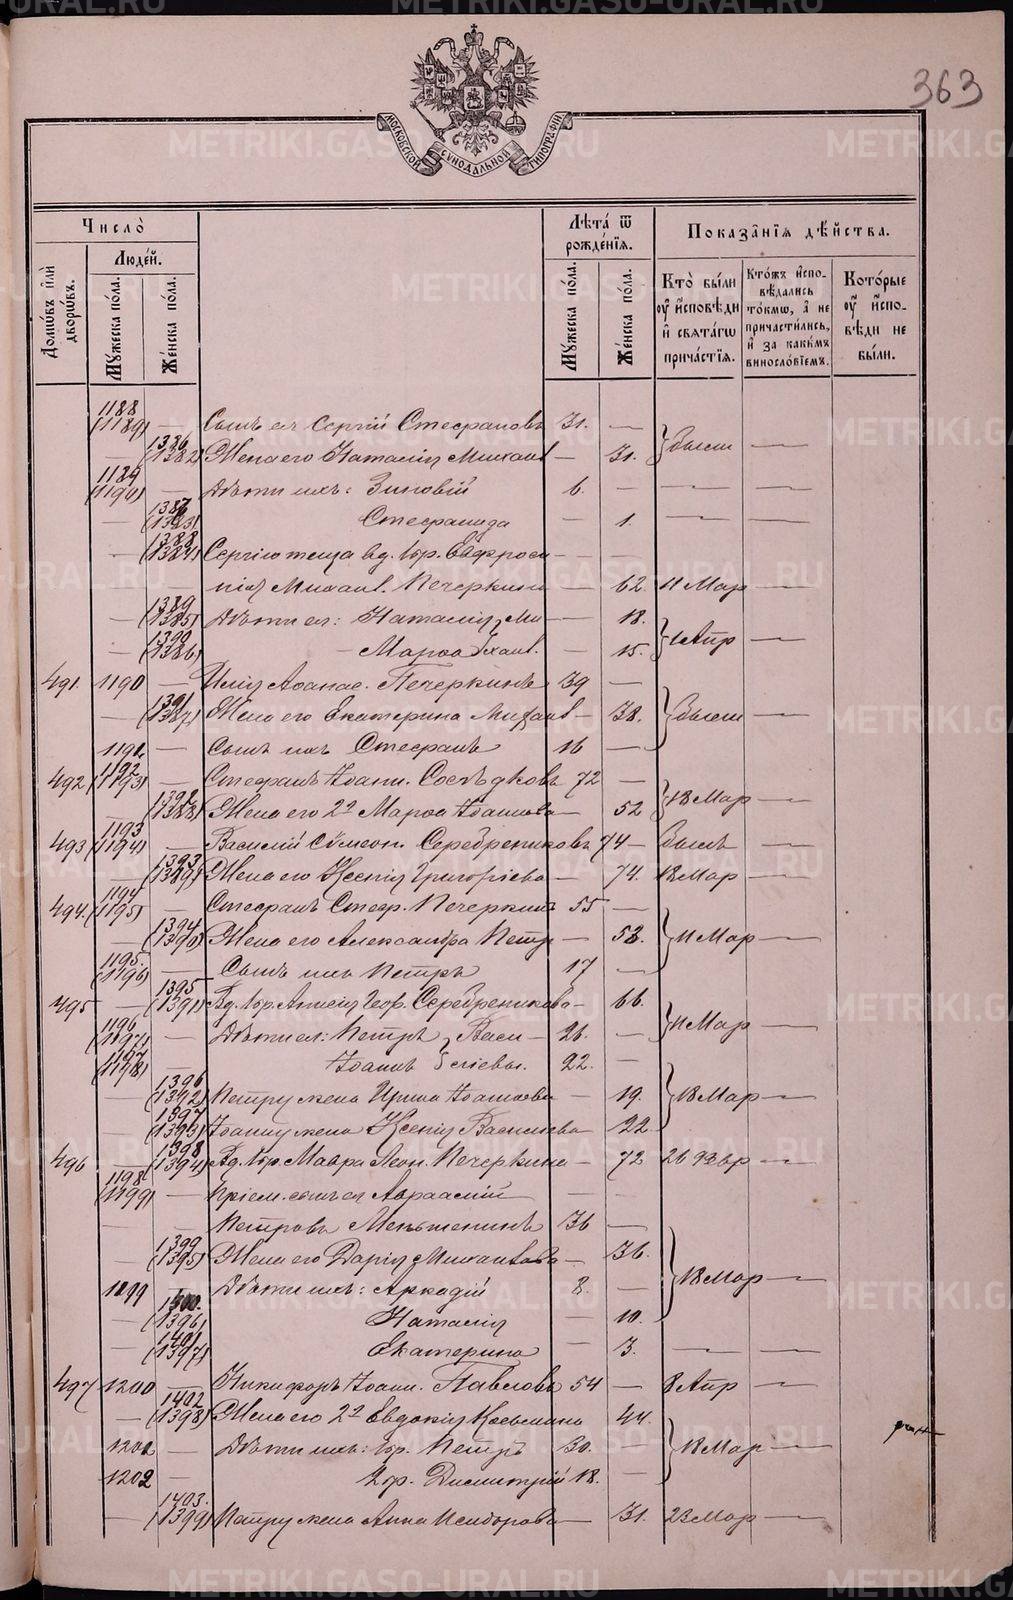 363
МОСКОВСКОЙ СѴНОДАЛЬНОЙ ТИПОГРАФІИ
Число̀
Людéй.
Домѡвъ и҆лѝ дворѡвъ.
Мꙋ́жеска по́ла.
Же́нска по́ла.
Лѣ́та ѿ рождє́нїѧ.
Мꙋ́жеска по́ла.
Же́нска по́ла.
Показа̑нїѧ дѣ́йства.
Кто̀ бы́ли ᲂу҆ и҆сповѣ́ди и҆ свѧта́гѡ прича́стїѧ.
Кто́жъ и҆спо- вѣ́дались то́кмѡ, а҆ не причасти́лись, и҆ за каки́мъ винослѡ́вїемъ.
Кото́рые ᲂу҆ и҆спо- вѣ́ди не бы́ли.
1188 (1189) — Сынъ ея Сергій Стефановъ 31. —
— 1386 (1382) Жена его Наталія Михаил — 31. } были —
1189 (1190) — Дѣти ихъ: Зиновій 6. — — —
— 1387 (1383) Стефанида — 1. — —
— 1388 (1384) Сергію теща вд. Евфроси — —
нія Михаил. Печеркина — 62. 11 Мар —
— 1389 (1385) Дѣти ея: Наталія Ми — 18.
— 1390 (1386) — Марѳа хаил. — 15. } 1 Апр —
491. 1190 — Илія Аѳанас. Печеркинъ 39 —
— 1391 (1387) Жена его Екатерина Михаил — 38. } были —
1191. — Сынъ ихъ Стефанъ 16 —
492 1192 (1193) — Стефанъ Іоанн. Сосѣдковъ 72 —
— 1392 (1388) Жена его 2я Марѳа Іоаннова — 52 } 18 Мар —
493 1193 (1194) — Василій Сѵмеон. Серебрениковъ 74 — былъ —
— 1393 (1389) Жена его Ксенія Григоріева — 74. 18 Мар —
494. 1194 (1195) — Стефанъ Стеф. Печеркинъ 55 —
— 1394 (1390) Жена его Александра Петр — 52. } 11 Мар —
1195. (1196) — Сынъ ихъ Петръ 17 —
495 — 1395 (1391) Вд. Анисія Геор. Серебреникова — 66.
1196 (1197) — Дѣти ея: Петръ Васи — 26. — } 11 Мар —
1197 (1198) — Іоаннъ ліевы. 22. —
— 1396 (1392) Петру жена Ирина — 19. } 18 Мар —
— 1397 (1393) Іоанну жена Ксенія Васильева — 22.
496 — 1398 (1394) Вд. Мавра Леон. Печеркина — 72 26 Февр —
1198 (1199) — Пріем. сынъ ея Авраамій — —
— — Петровъ Меньшенинъ 36 —
— 1399 (1395) Жена его Дарія Михаилова — 36. } 18 Мар —
1199 — Дѣти ихъ: Аркадій 8. —
— 1400. (1396) Наталія — 10.
— 1401 (1397) Екатерина — 3. — —
497 1200 — Никифоръ Іоанн. Павловъ 54 — 8 Апр —
— 1402 (1398) Жена его 2я Евдокія Косьмина 44.
1201 — Дѣти ихъ: Петръ 30. — } 18 Мар —
1202 — Димитрій 18. —
— 1403. (1399) Петру жена Анна Исидорова — 31. 23 Мар —
METRIKI.GASO-URAL.RU